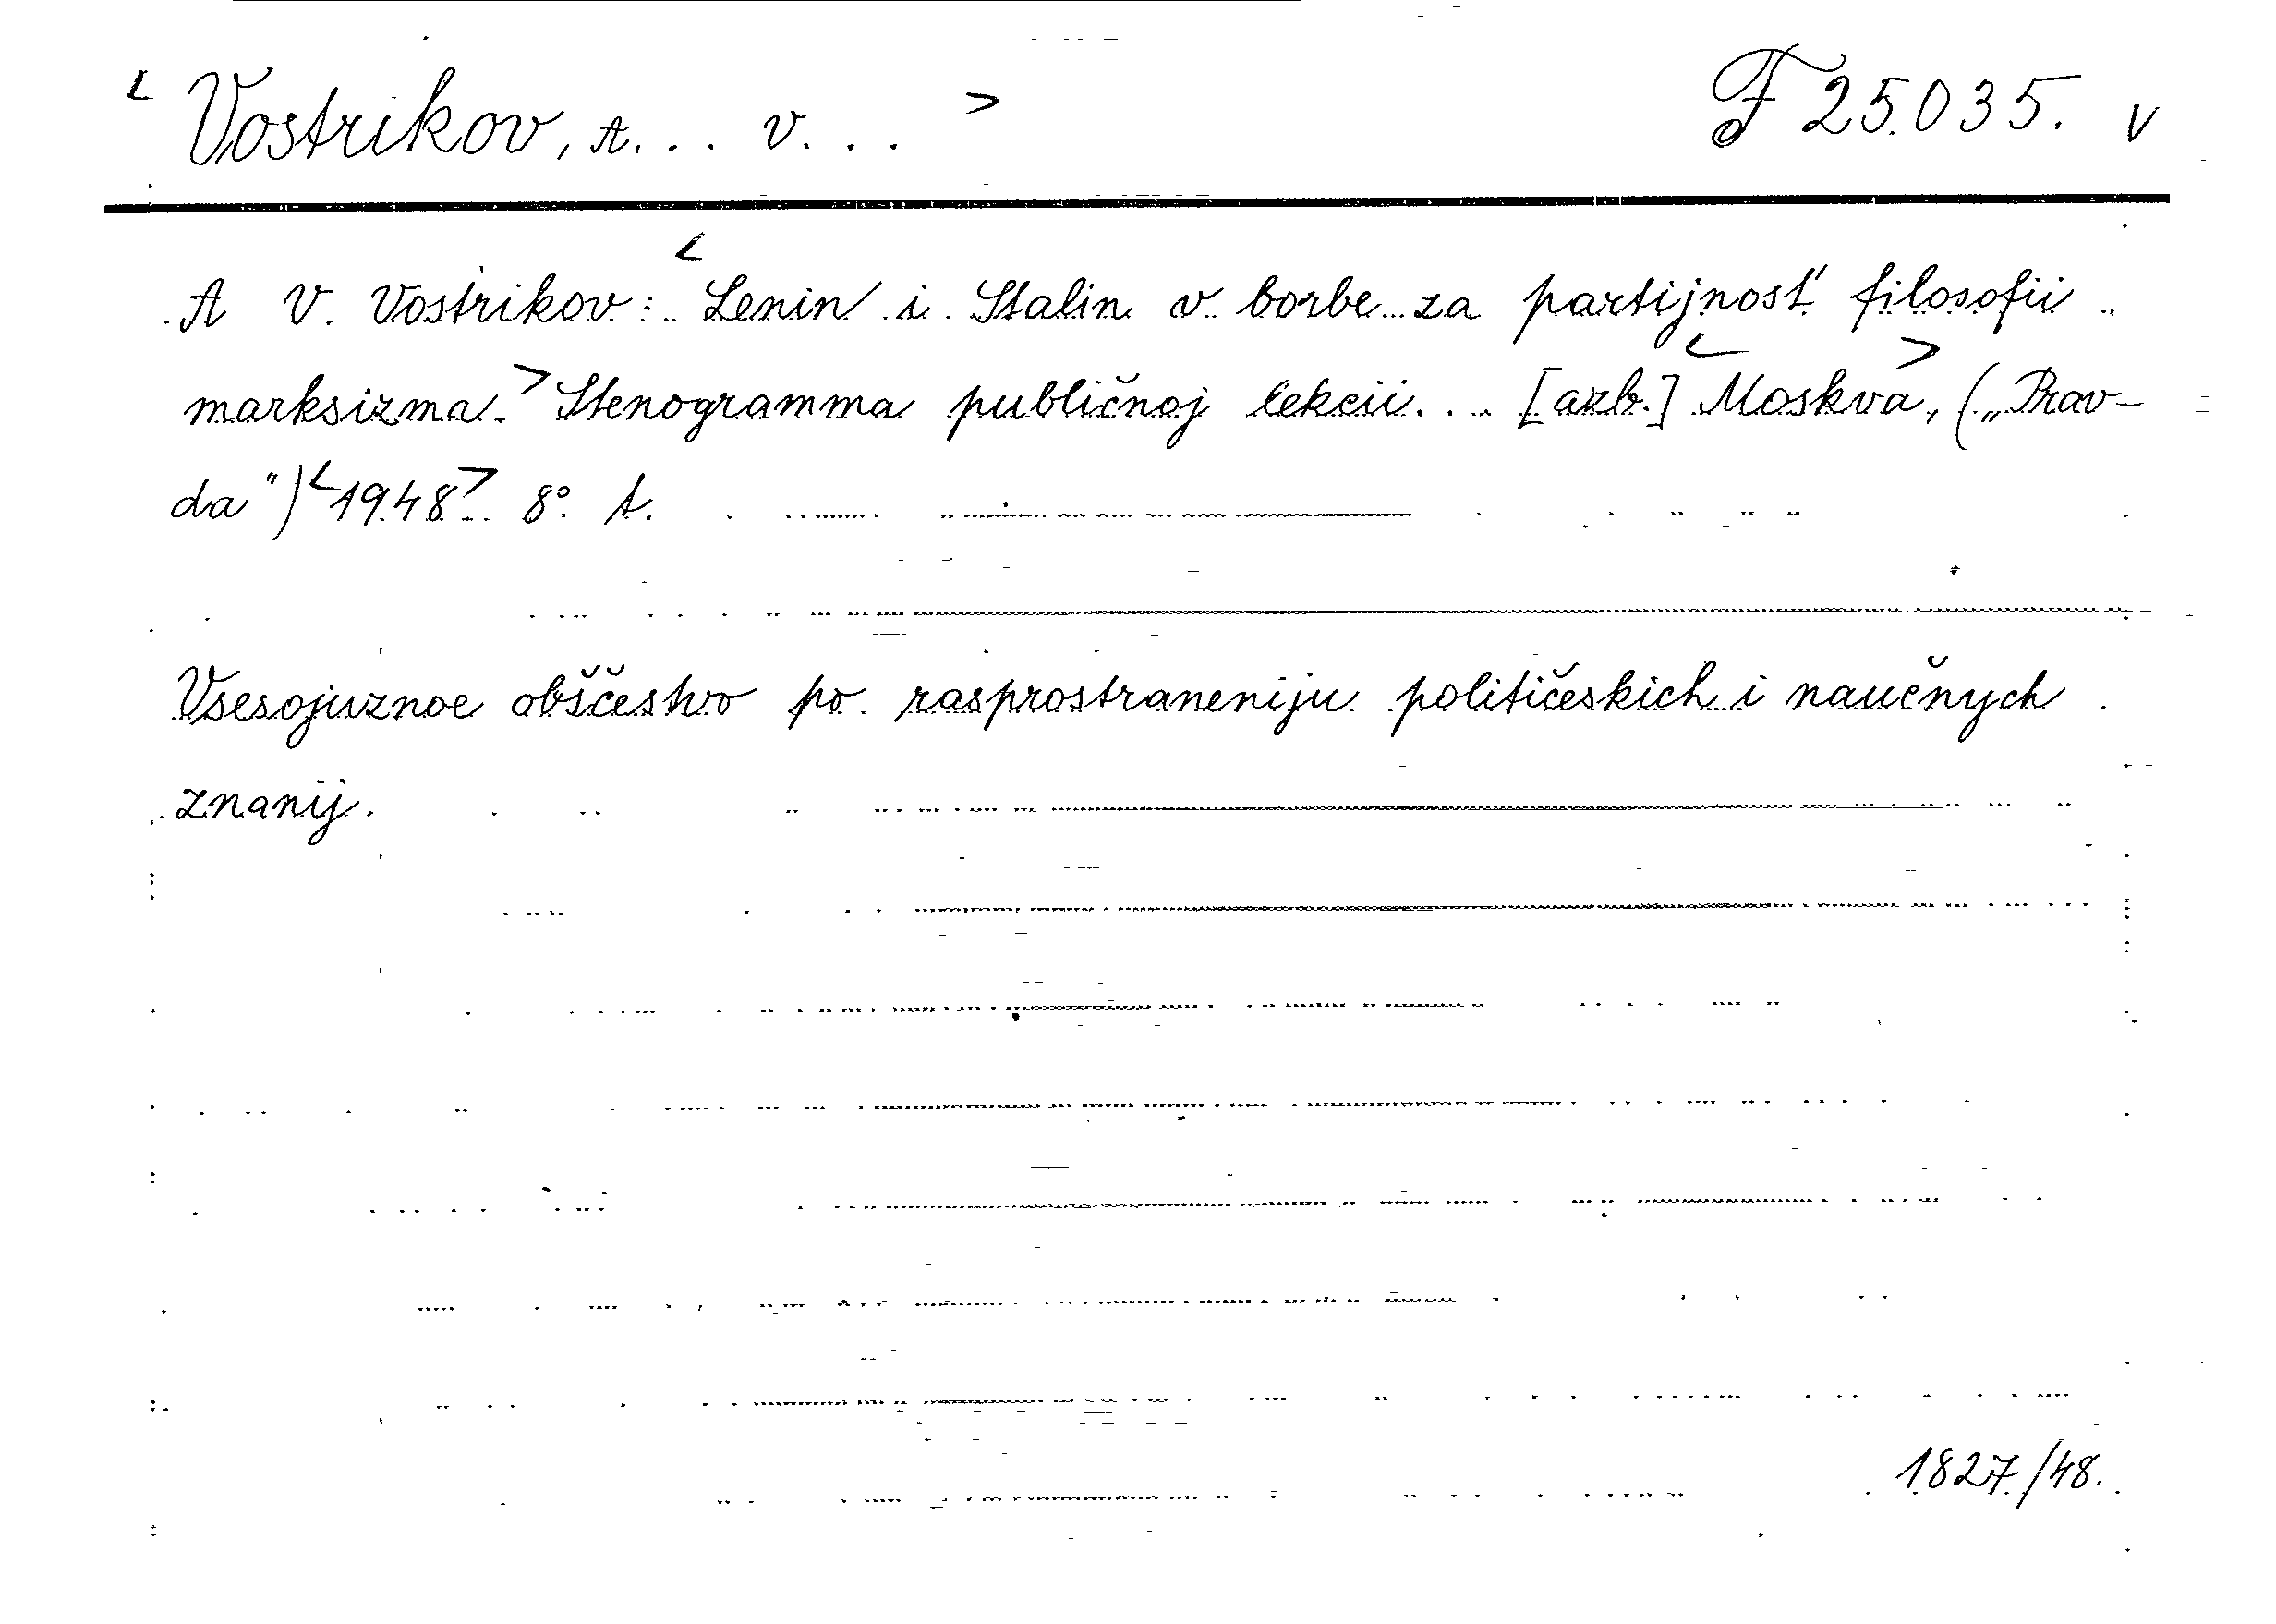 < Vostrikov, A... V... > F 25.035. V
A V. Vostrikov: < Lenin i Stalin v borbe za partijnost' filosofii
marksizma. > Stenogramma publičnoj lekcii... [azb.] < Moskva >, („Prav-
da") < 1948 > 8°. A.
Vsesojuznoe obščestvo po rasprostraneniju političeskich i naučnych
znanij.
1827/48.